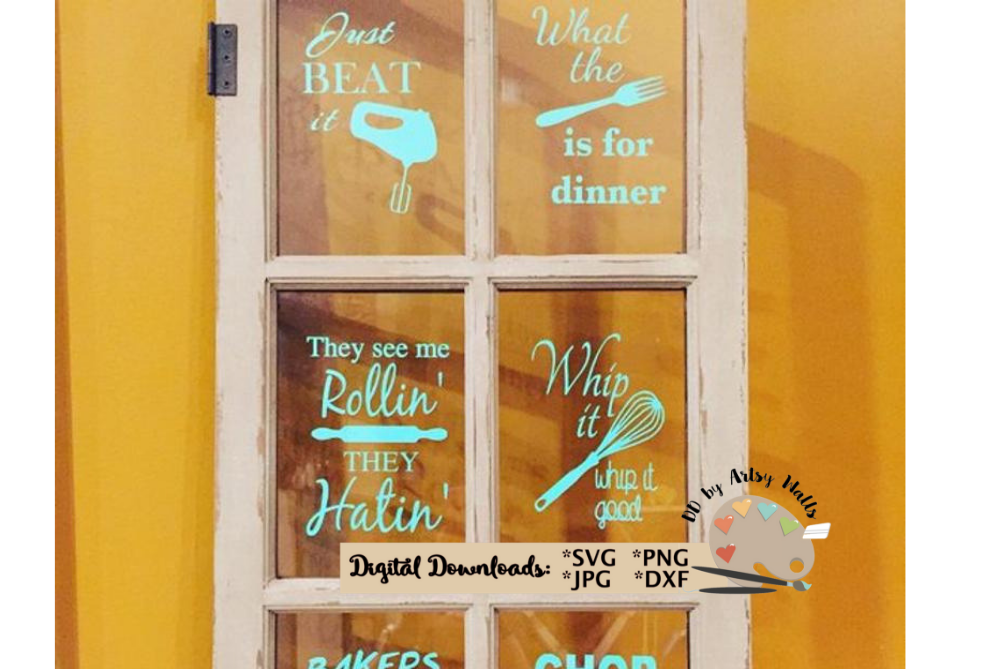 Just
BEAT
it
What
the
is for
dinner
They see me
Rollin'
THEY
Hatin'
Whip
it
whip it
good
DD by Artsy Walls
Digital Downloads: *SVG *PNG
*JPG *DXF
BAKERS
CHOP